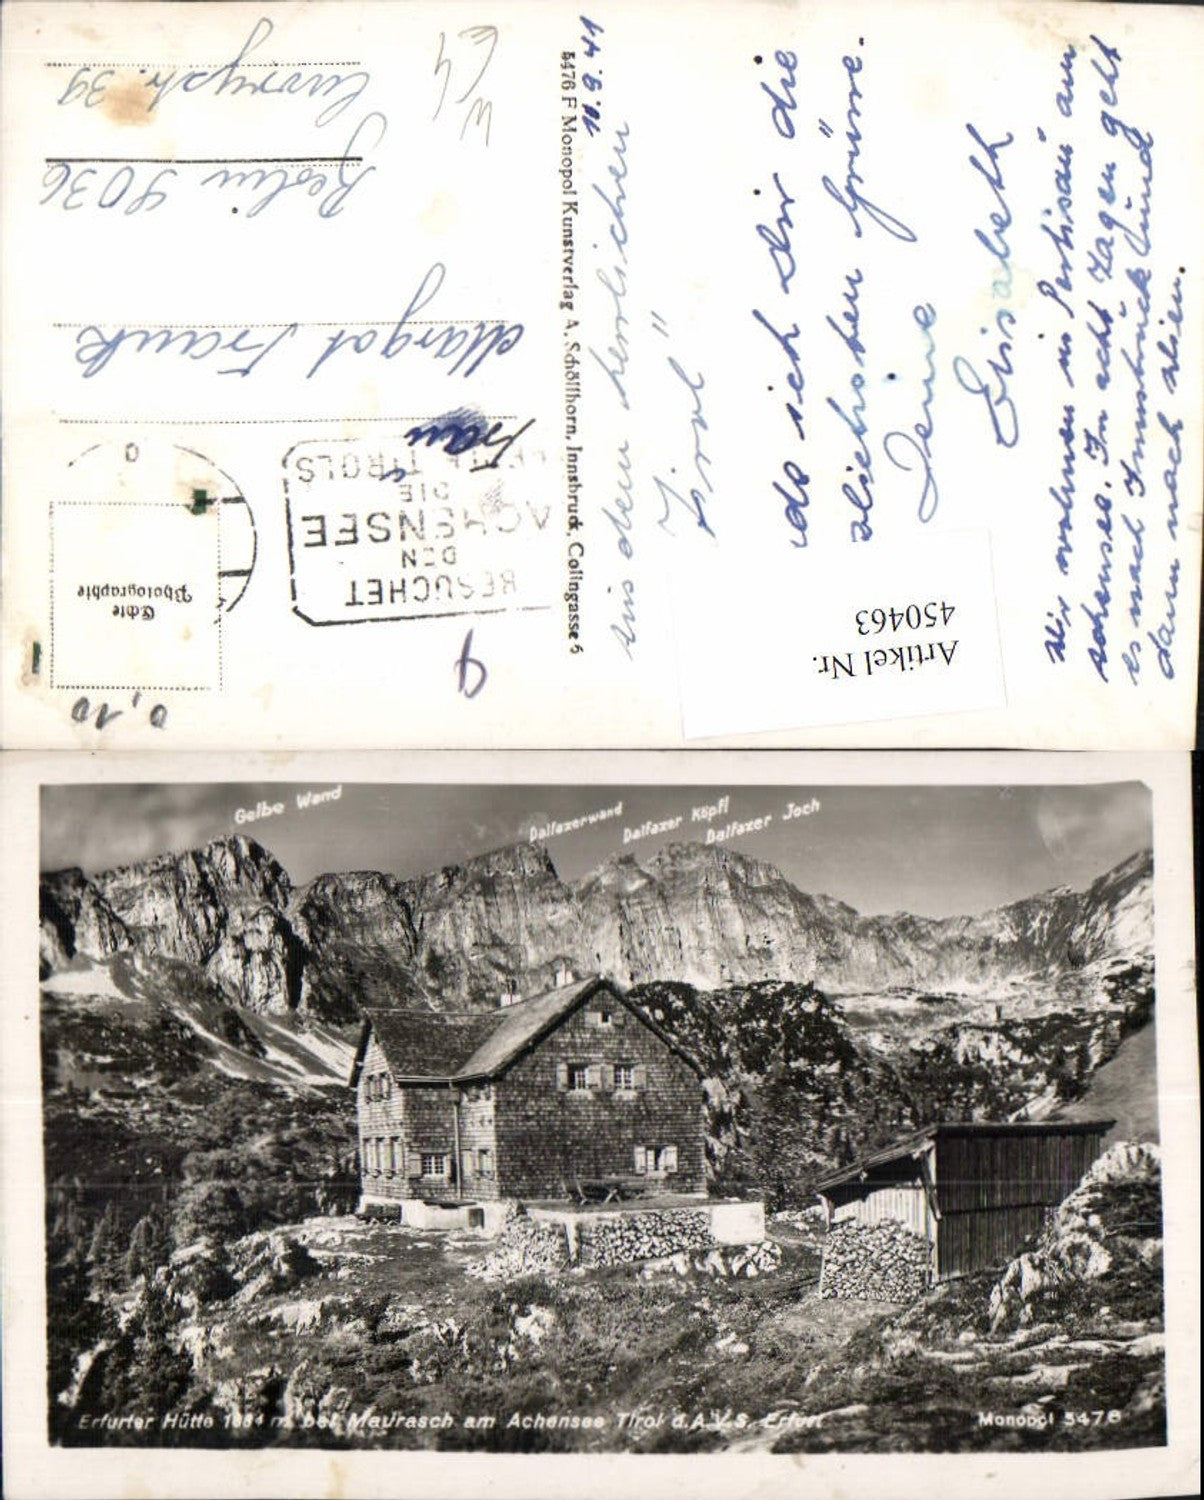 11.9.41
Aus dem herrlichen
"Tirol"
ich dir die
herzlichsten Grüsse.
Deine
Elisabeth
Wir wohnen in Pertisau am
Achensee. In acht Tagen geht
es nach Innsbruck und
dann nach Wien.
5476 F Monopol Kunstverlag A. Schöllhorn, Innsbruck, Colingasse 5
0,10
9
Echte
Photographie
BESUCHET
DEN
ACHENSEE
DIE
PERLE TIROLS
Frau
Margot Frank
Berlin SO36
Cuvrystr. 39
Artikel Nr.
450463
Gelbe Wand
Dalfazerwand
Dalfazer Köpfl
Dalfazer Joch
Erfurter Hütte 1834 m bei Maurasch am Achensee Tirol d.A.V.S. Erfurt
Monopol 5476